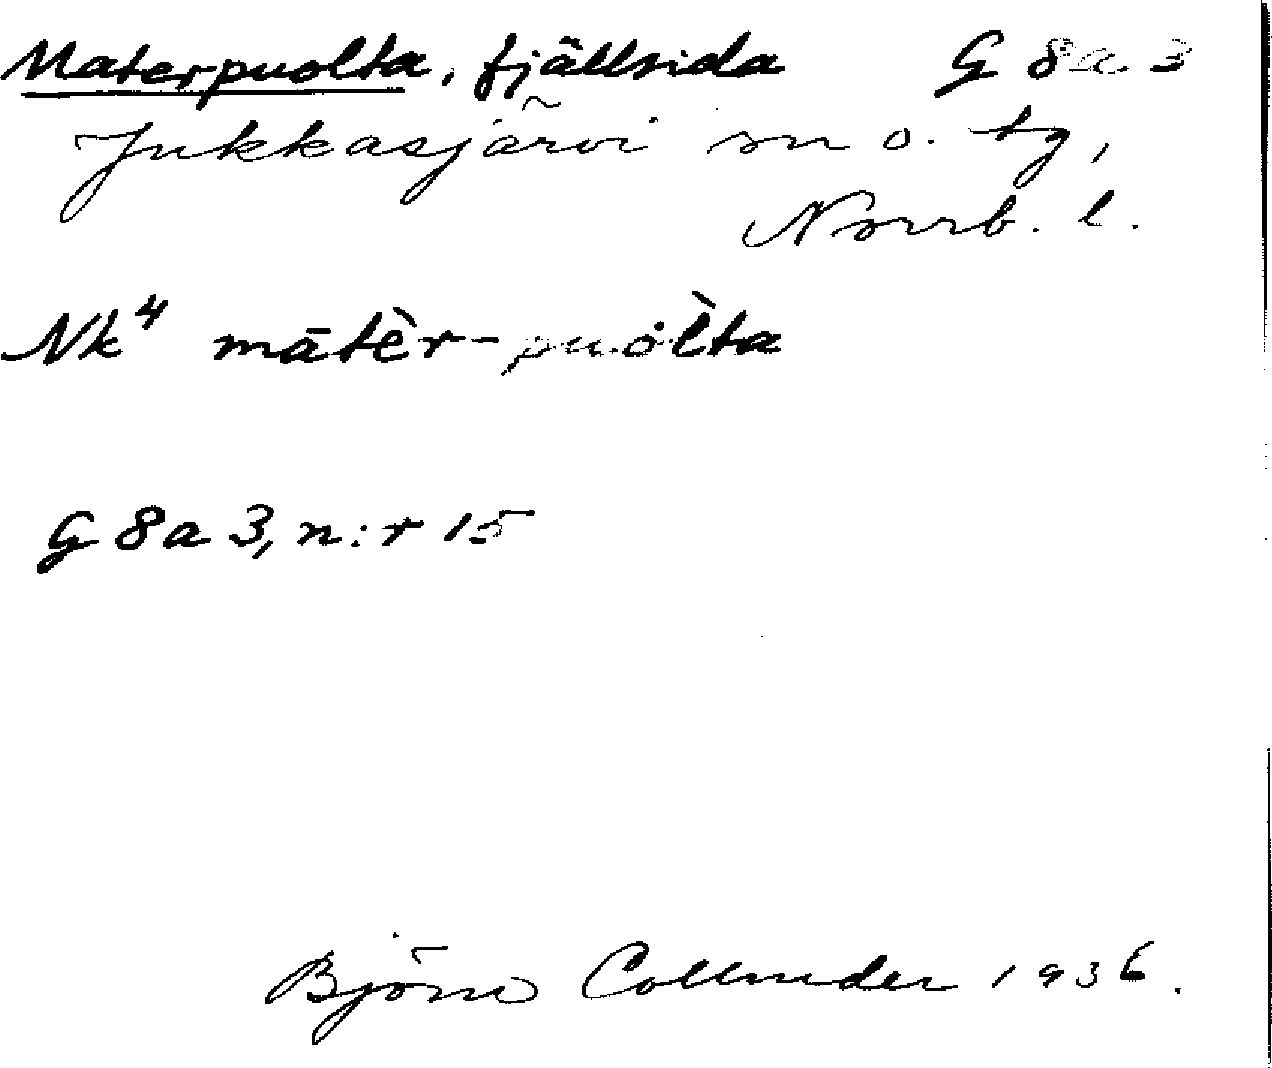 Materpuolta, fjällsida G 8a 3
Jukkasjärvi sn o. tg,
Norrb. l.
Nk⁴ mātèr-puȯl̀ta
G 8a 3, n:r 15
Björn Collinder 1936.